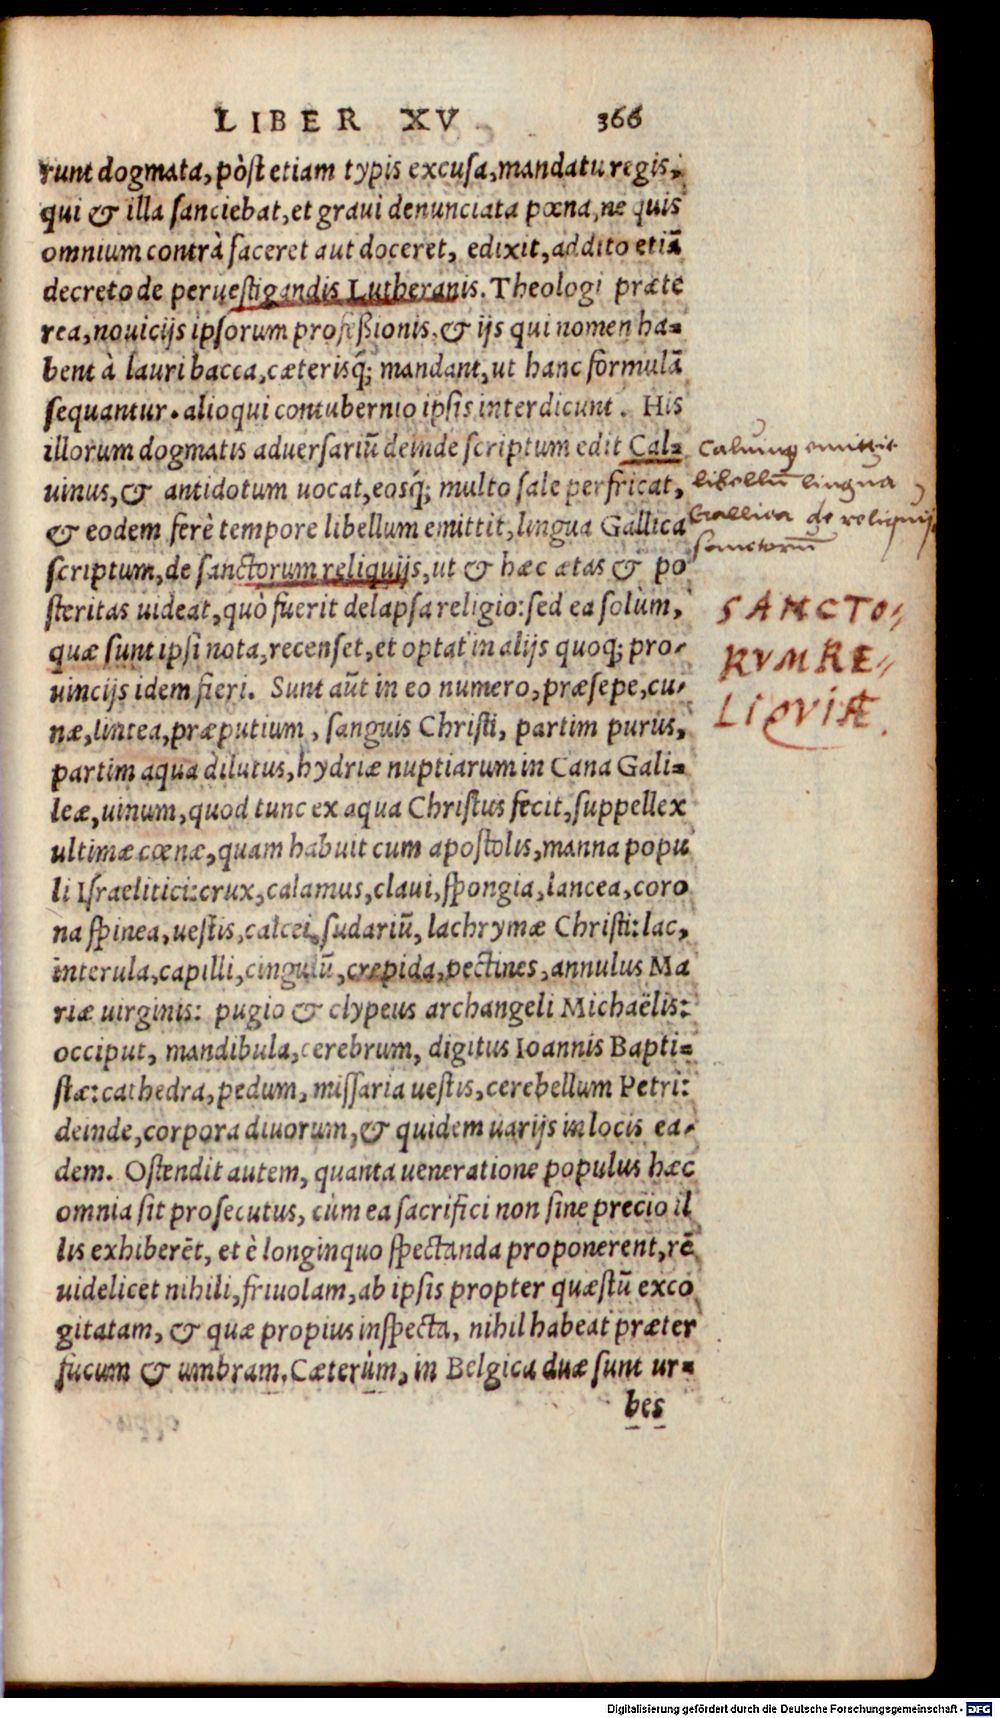 LIBER XV. 366
runt dogmata, pòst etiam typis excusa, mandatu regis,
qui & illa sanciebat, et gravi denunciata pœna, ne quis
omnium contrà faceret aut doceret, edixit, addito etiã
decreto de pervestigandis Lutheranis. Theologi præte
rea, novicijs ipsorum professionis, & ijs qui nomen ha=
bent à lauri bacca, cæterisq́; mandant, ut hanc formulã
sequantur. alioqui contubernio ipsis interdicunt. His
illorum dogmatis adversariũ deinde scriptum edit Cal=
vinus, & antidotum vocat, eosq́; multo sale perfricat,
& eodem ferè tempore libellum emittit, lingua Gallica
scriptum, de sanctorum reliquijs, ut & hæc ætas & po
steritas uideat, quò fuerit delapsa religio: sed ea solùm,
quæ sunt ipsi nota, recenset, et optat in alijs quoq; pro-
vincijs idem fieri. Sunt aũt in eo numero, præsepe, cu-
næ, lintea, præputium, sanguis Christi, partim purus,
partim aqua dilutus, hydriæ nuptiarum in Cana Gali=
leæ, uinum, quod tunc ex aqua Christus fecit, suppellex
ultimæ cœnæ, quam habuit cum apostolis, manna popu
li Israelitici: crux, calamus, clavi, spongia, lancea, coro
na spinea, uestis, calcei, sudariũ, lachrymæ Christi: lac,
interula, capilli, cingulũ, crepida, pectines, annulus Ma
riæ uirginis: pugio & clypeus archangeli Michaëlis:
occiput, mandibula, cerebrum, digitus Ioannis Bapti=
stæ: cathedra, pedum, missaria uestis, cerebellum Petri:
deinde, corpora divorum, & quidem uarijs in locis ea-
dem. Ostendit autem, quanta ueneratione populus hæc
omnia sit prosecutus, cùm ea sacrifici non sine precio il
lis exhiberẽt, et è longinquo spectanda proponerent, rẽ
uidelicet nihili, frivolam, ab ipsis propter quæstũ exco
gitatam, & quæ propius inspecta, nihil habeat præter
fucum & umbram. Cæterùm, in Belgica duæ sunt ur=
bes
Calvinus emittit
libellũ lingua
Gallica de reliquijs
sanctorũ
SANCTO-
RVM RE-
LIQVIÆ.
Digitalisierung gefördert durch die Deutsche Forschungsgemeinschaft - DFG